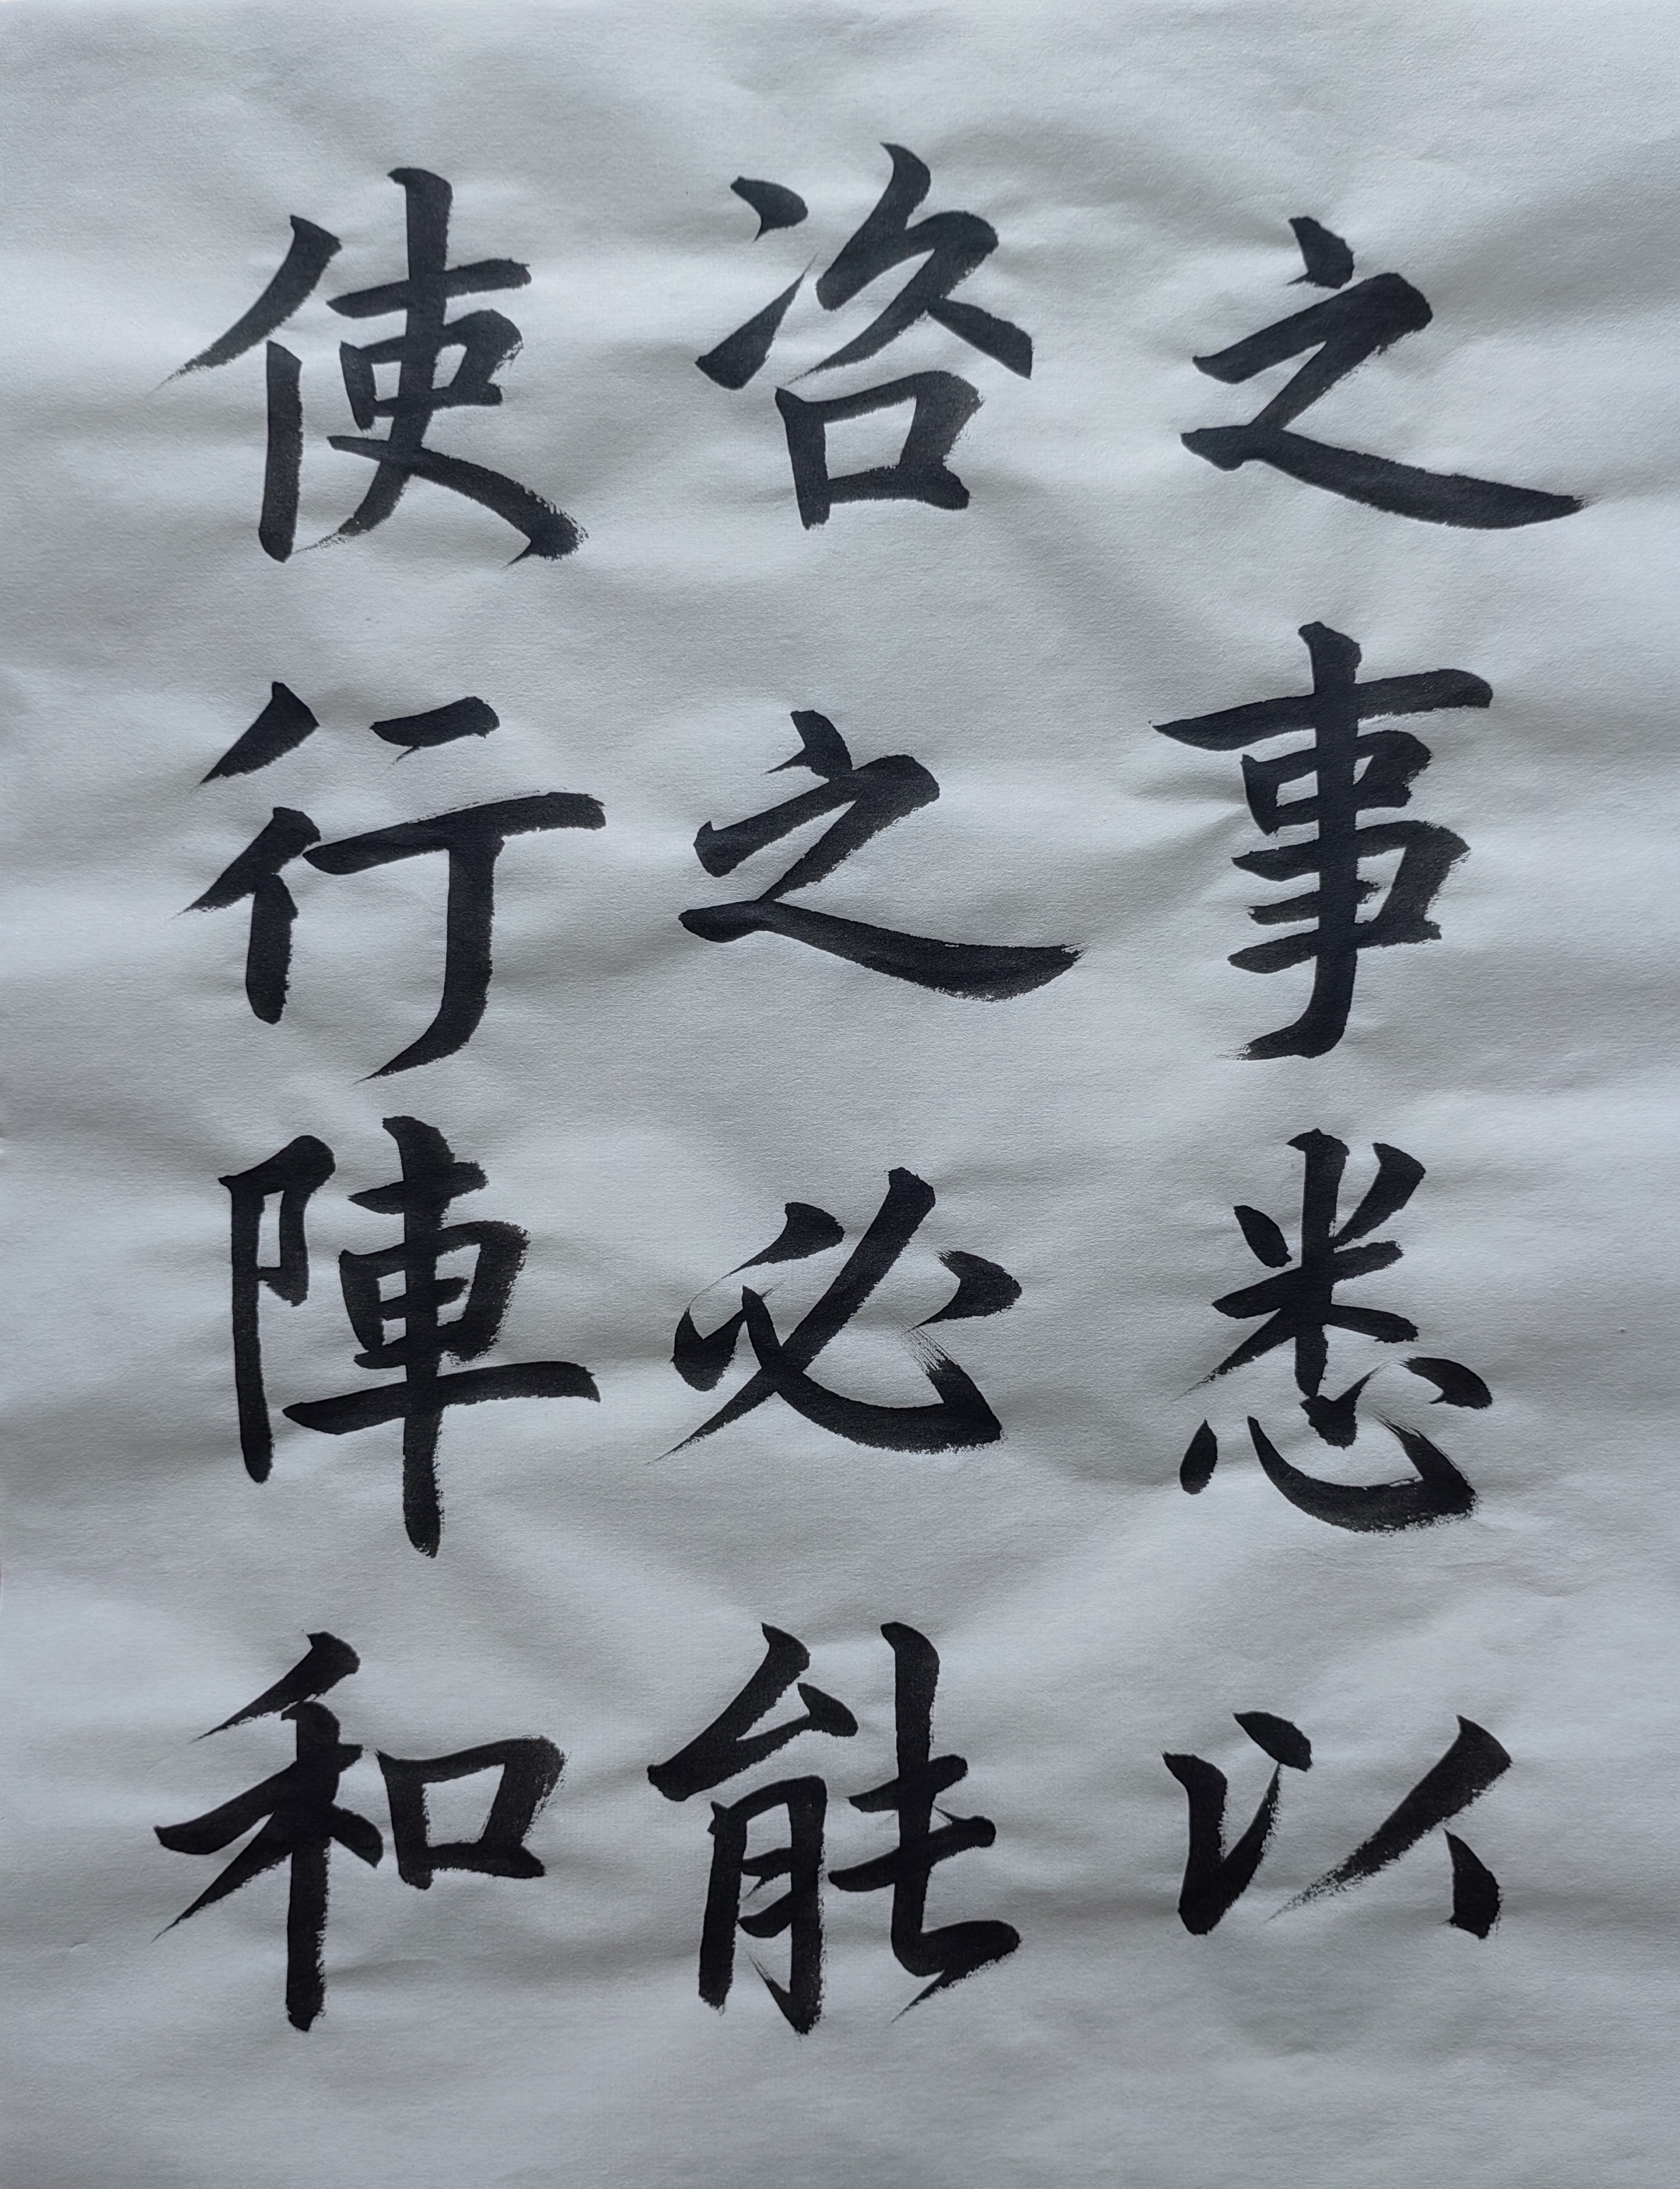 之事悉以
咨之必能
使行陣和